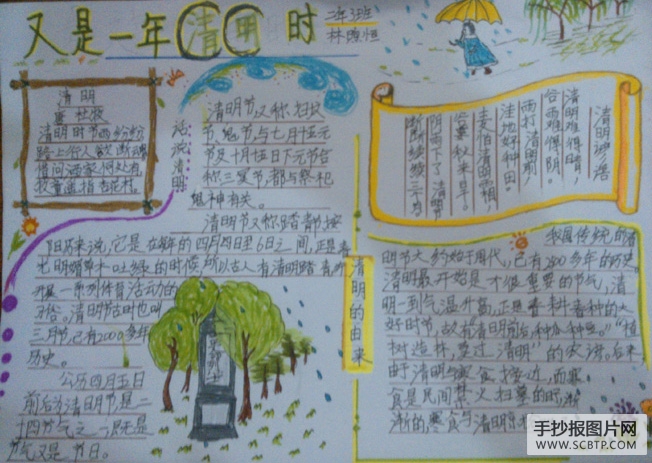 又是一年清明时
二年3班
林原恒
清明
唐 杜牧
清明时节雨纷纷
路上行人欲断魂
借问酒家何处有
牧童遥指杏花村
话说清明
清明节又称扫坟
节、鬼节与七月十五元
节及十月十五日下元节合
称三冥节,都与祭祀
鬼神有关。
清明节又称踏青节,按
阳历来说,它是在每年的四月四日至6日之间,正是春
光明媚草木吐绿的时候,所以古人有清明踏青,并
开展一系列体育活动的
习俗。清明节古时也叫
三月节,已有2000多年
历史。
公历四月五日
前后为清明节是二
十四节气之一既是
节气又是节日。
清明谚语
清明难得晴,
谷雨难得阴。
雨打清明前,
洼地好种田。
麦怕清明霜
谷要秋来旱。
阴雨下了清明节
断断续续三个月
清明的由来
我国传统的清
明节大约始于周代,已有2500多年的历史。
清明最开始是一个很重要的节气,清
明一到气温升高,正是春耕春种的大
好时节,故有清明前后,种瓜种豆。”“植
树造林,莫过清明”的农谚。后来
由于清明与寒食接近,而寒
食是民间禁火扫墓的日子渐
渐的寒食与清明
手抄报图片网
WWW.SCBTP.COM